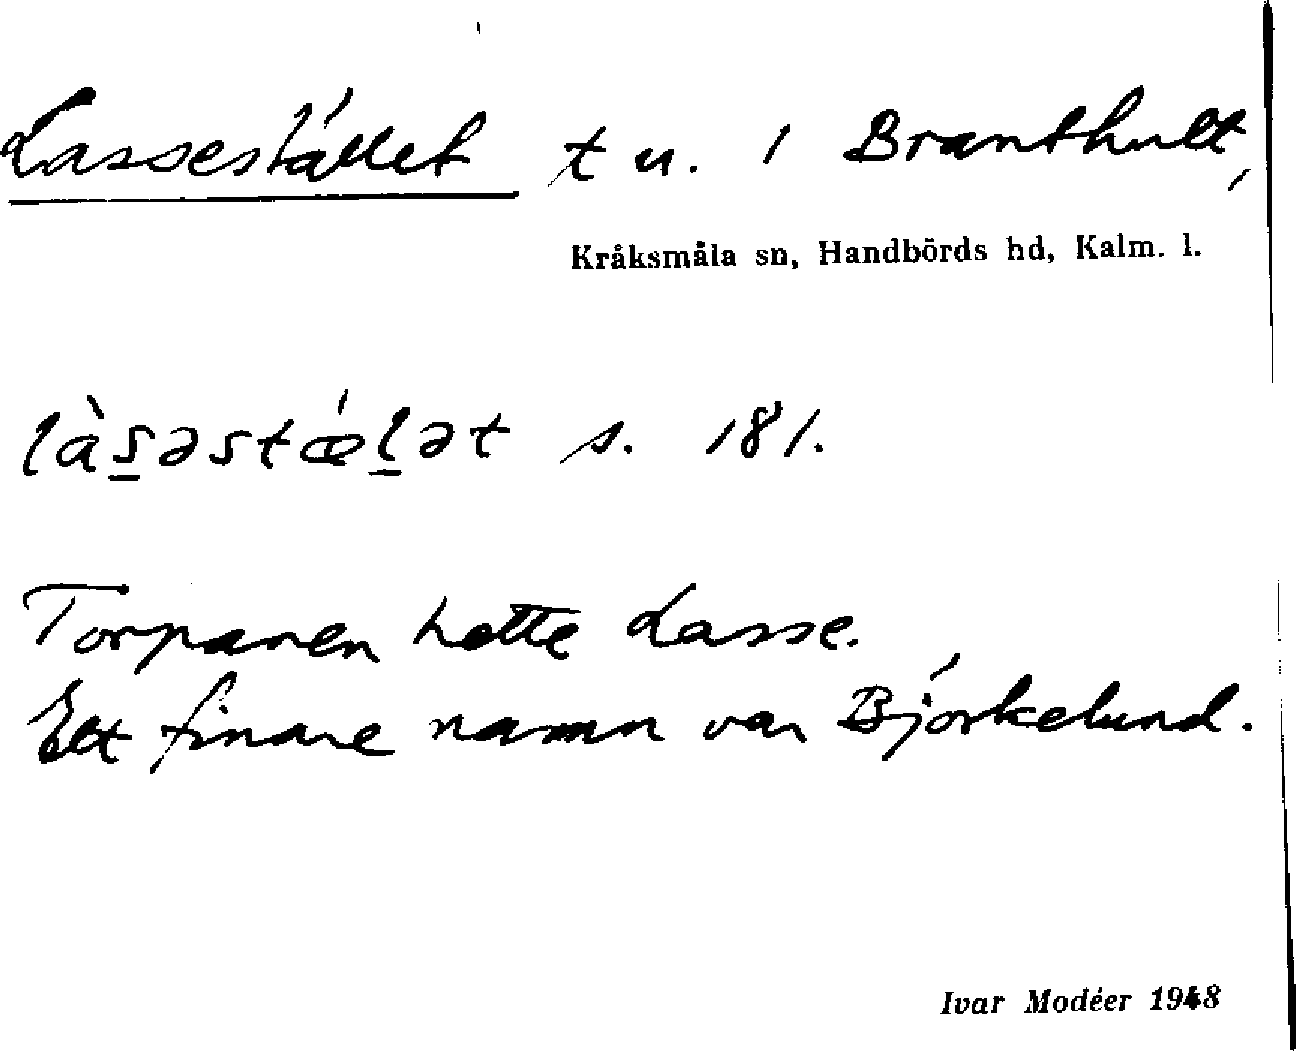 Lassestället t u. i Branthult,
Kråksmåla sn, Handbörds hd, Kalm. l.
là͟səstǽl͟ət s. 181.
Torparen hette Lasse.
Ett finare namn var Björkelund.
Ivar Modéer 1948